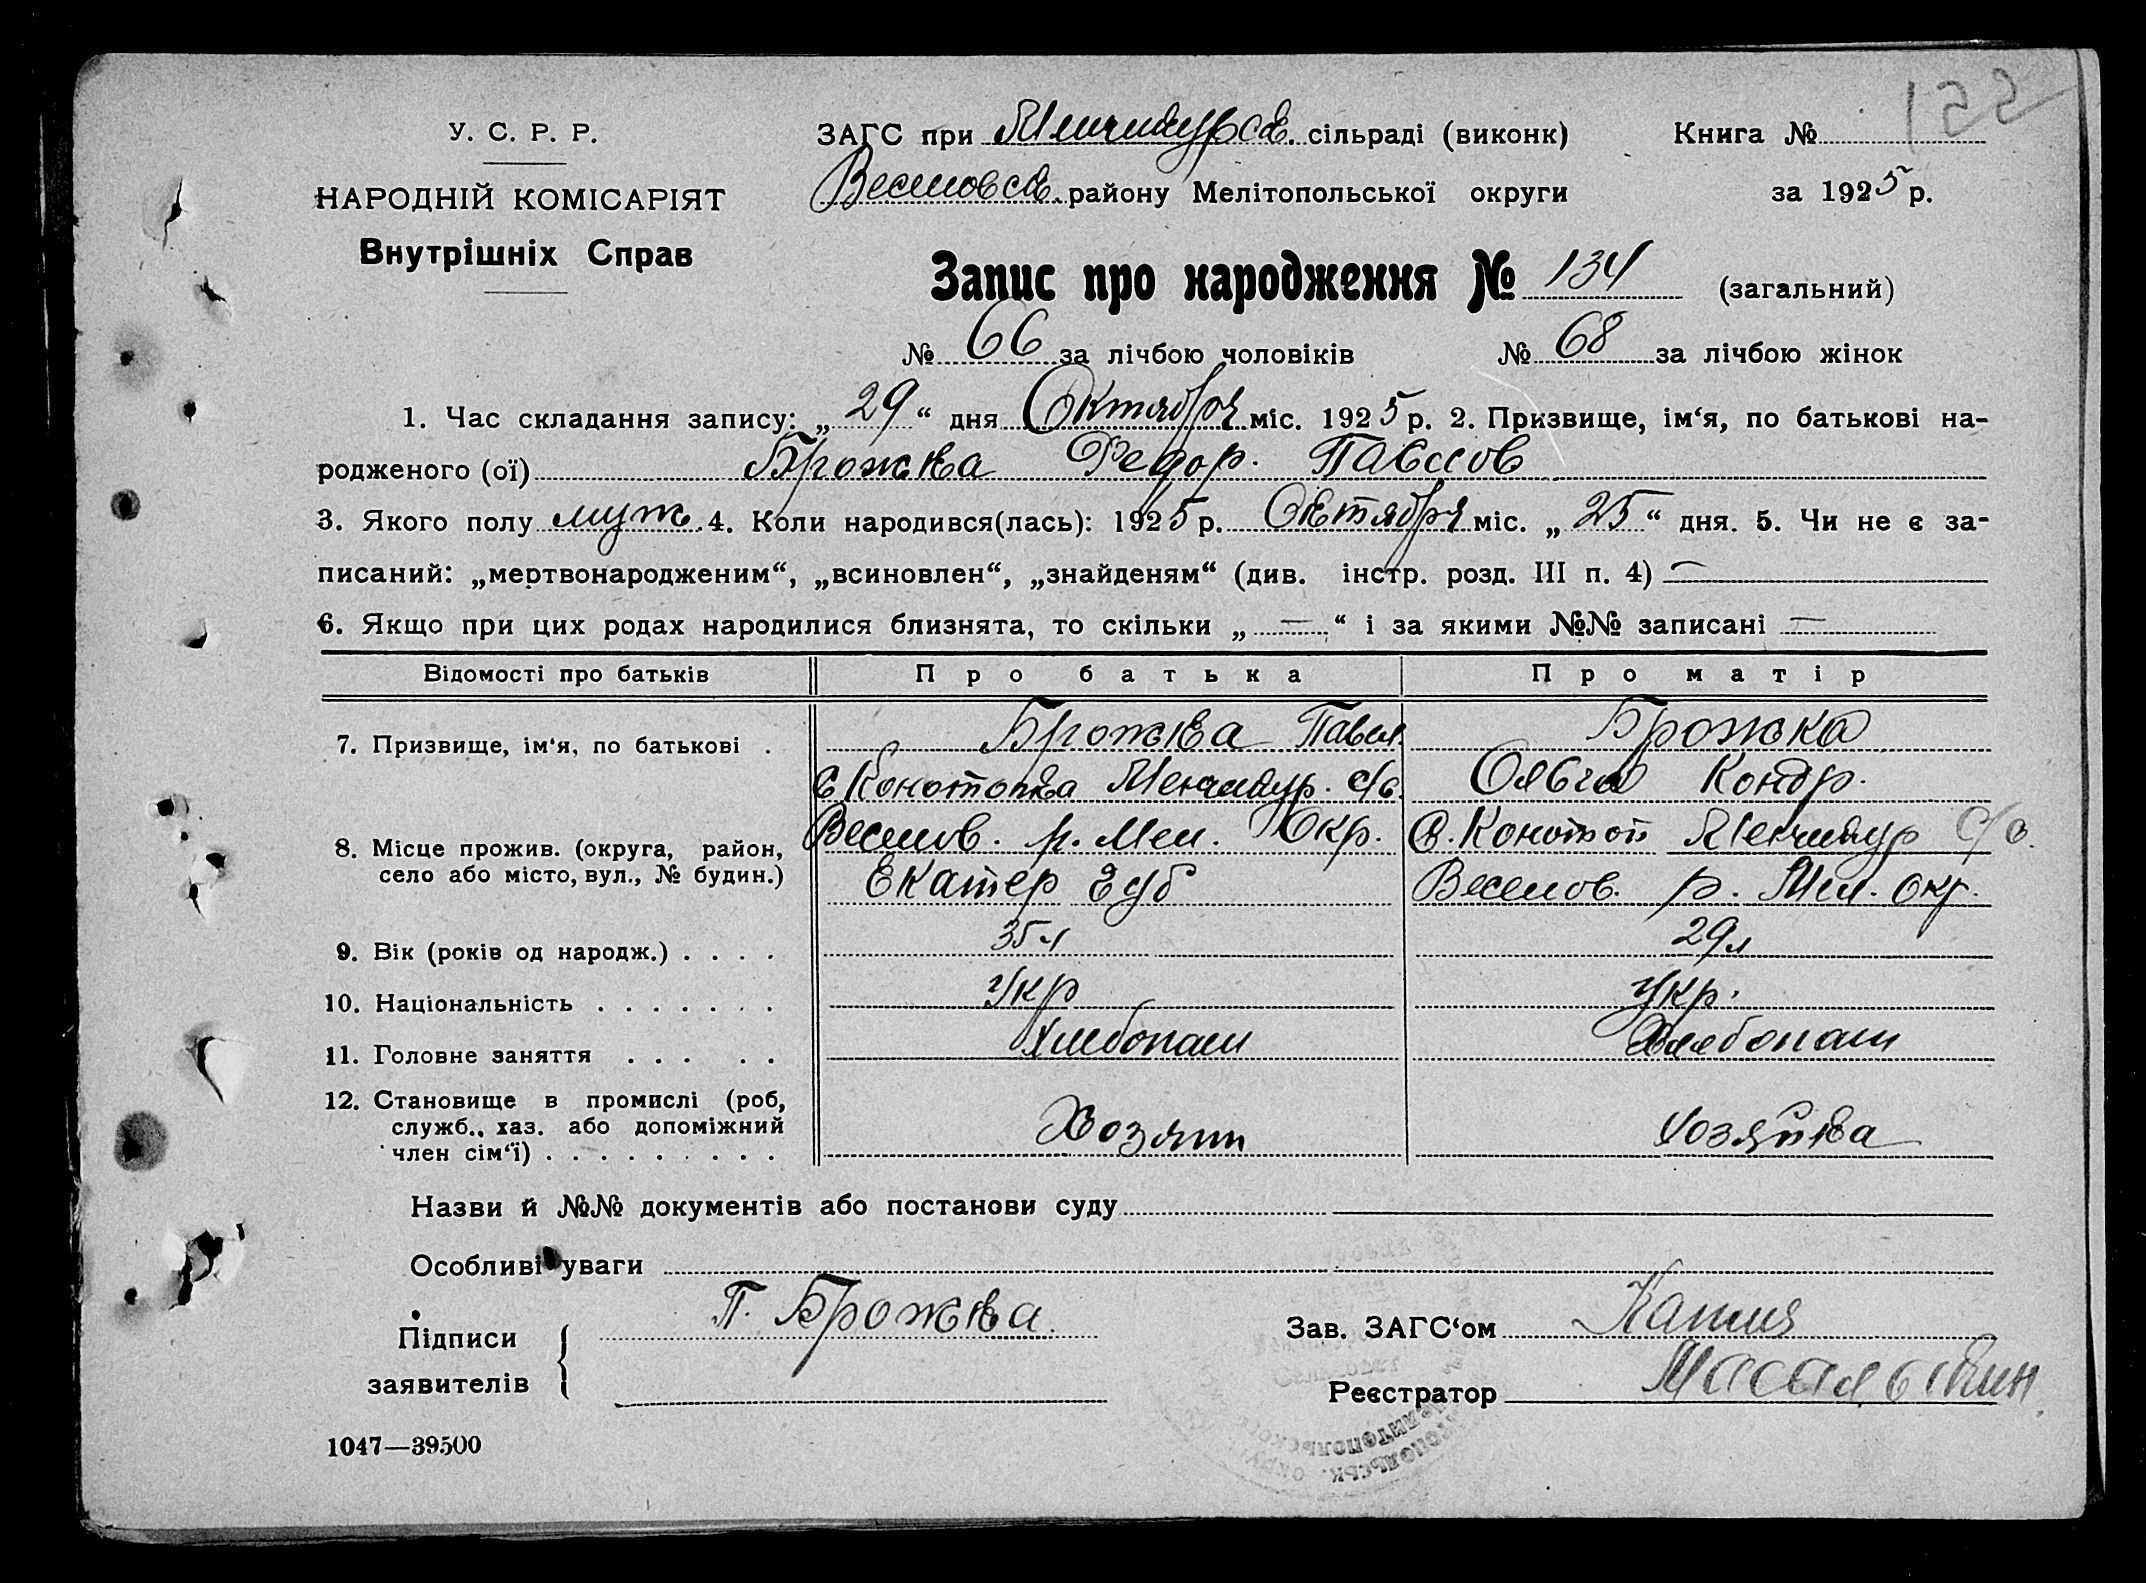 122
У. С. Р. Р.
НАРОДНІЙ КОМІСАРІЯТ
Внутрішніх Справ
ЗАГС при Менчикурск. сільраді (виконк)
Веселовск. району Мелітопольської округи
Книга №
за 1925 р.
Запис про народження № 134 (загальний)
№ 66 за лічбою чоловіків № 68 за лічбою жінок
1. Час складання запису: „29“ дня Октября міс. 1925 р. 2. Призвище, ім‘я, по батькові на-
родженого (ої) Брожка Федор. Павлов
3. Якого полу муж. 4. Коли народився(лась): 1925 р. Октября міс. „25“ дня. 5. Чи не є за-
писаний: „мертвонародженим“, „всиновлен“, „знайденям“ (див. інстр. розд. III п. 4) —
6. Якщо при цих родах народилися близнята, то скільки „—“ і за якими №№ записані —
Відомості про батьків Про батька Про матір
7. Призвище, ім‘я, по батькові . Брожка Павел. Брожка
с Конотопка Менчикур. с/с. Ольга Кондр.
8. Місце прожив. (округа, район, село або місто, вул., № будин.) Веселов. р. Мел. Окр. с. Конотоп Менчикур С/с.
Екатер Губ Веселов. р. Мел. окр.
9. Вік (років од народж.) . . . . 35 л 29 л
10. Національність . . . . . . . Укр Укр.
11. Головне заняття . . . . . Хлебопаш Хлебопаш
12. Становище в промислі (роб, служб., хаз. або допоміжний член сім‘ї) . . . . . . . . . Хозяин Хозяйка
Назви й №№ документів або постанови суду
Особливі уваги
Підписи
заявителів
П. Брожка.
Зав. ЗАГС‘ом
Реєстратор Масалыкин
1047—39500